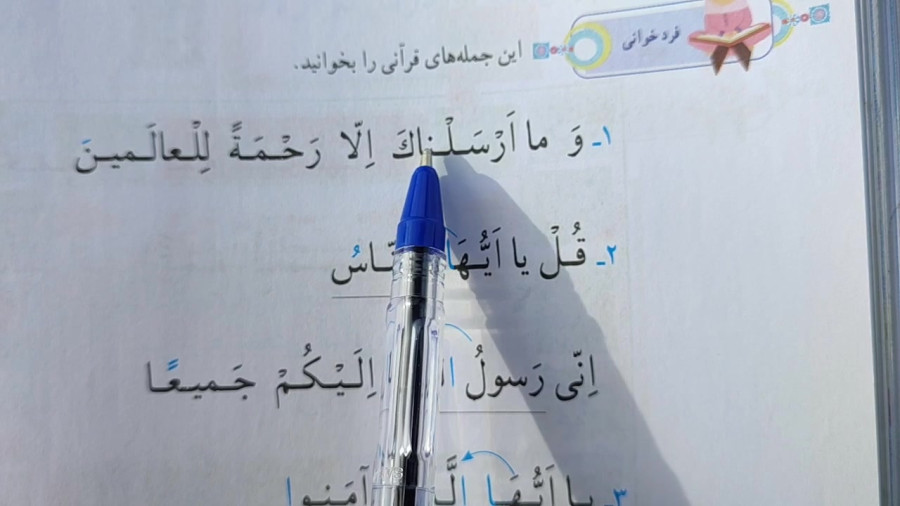 فرد خوانی
این جمله‌های قرآنی را بخوانید.
۱ـ وَ ما اَرْسَلْناكَ اِلّا رَحْمَةً لِلْعالَمینَ
۲ـ قُلْ یا اَیُّهَا
اِنّی رَسولُ اِلَیْكُمْ جَمیعًا
۳ـ یا اَیُّهَا آمَنوا